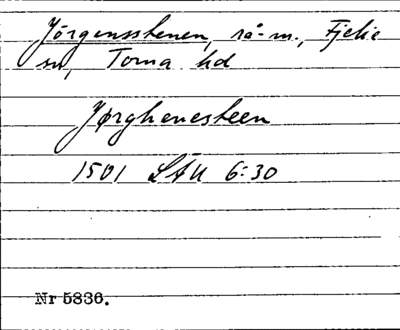 Jörgensstenen, rå-m., Fjelie
sn, Torna hd
Jørghenesteen
1501 LÄU 6:30
Nr 5836.